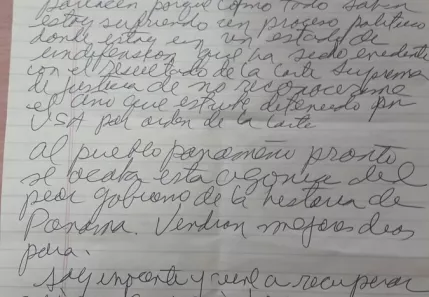 parlacen porque como todo saben
estoy sufriendo un proceso politico
donde estoy en un estado de
indefension que ha sido evidente
con el resultado de la Corte Suprema
de justicia de no reconocerme
el año que estube detenido por
USA por orden de la Corte
al pueblo panameño pronto
se acaba esta agonia del
peor gobierno de la historia de
Panama. Vendran mejores dias
para.
Soy inocente y a recuperar